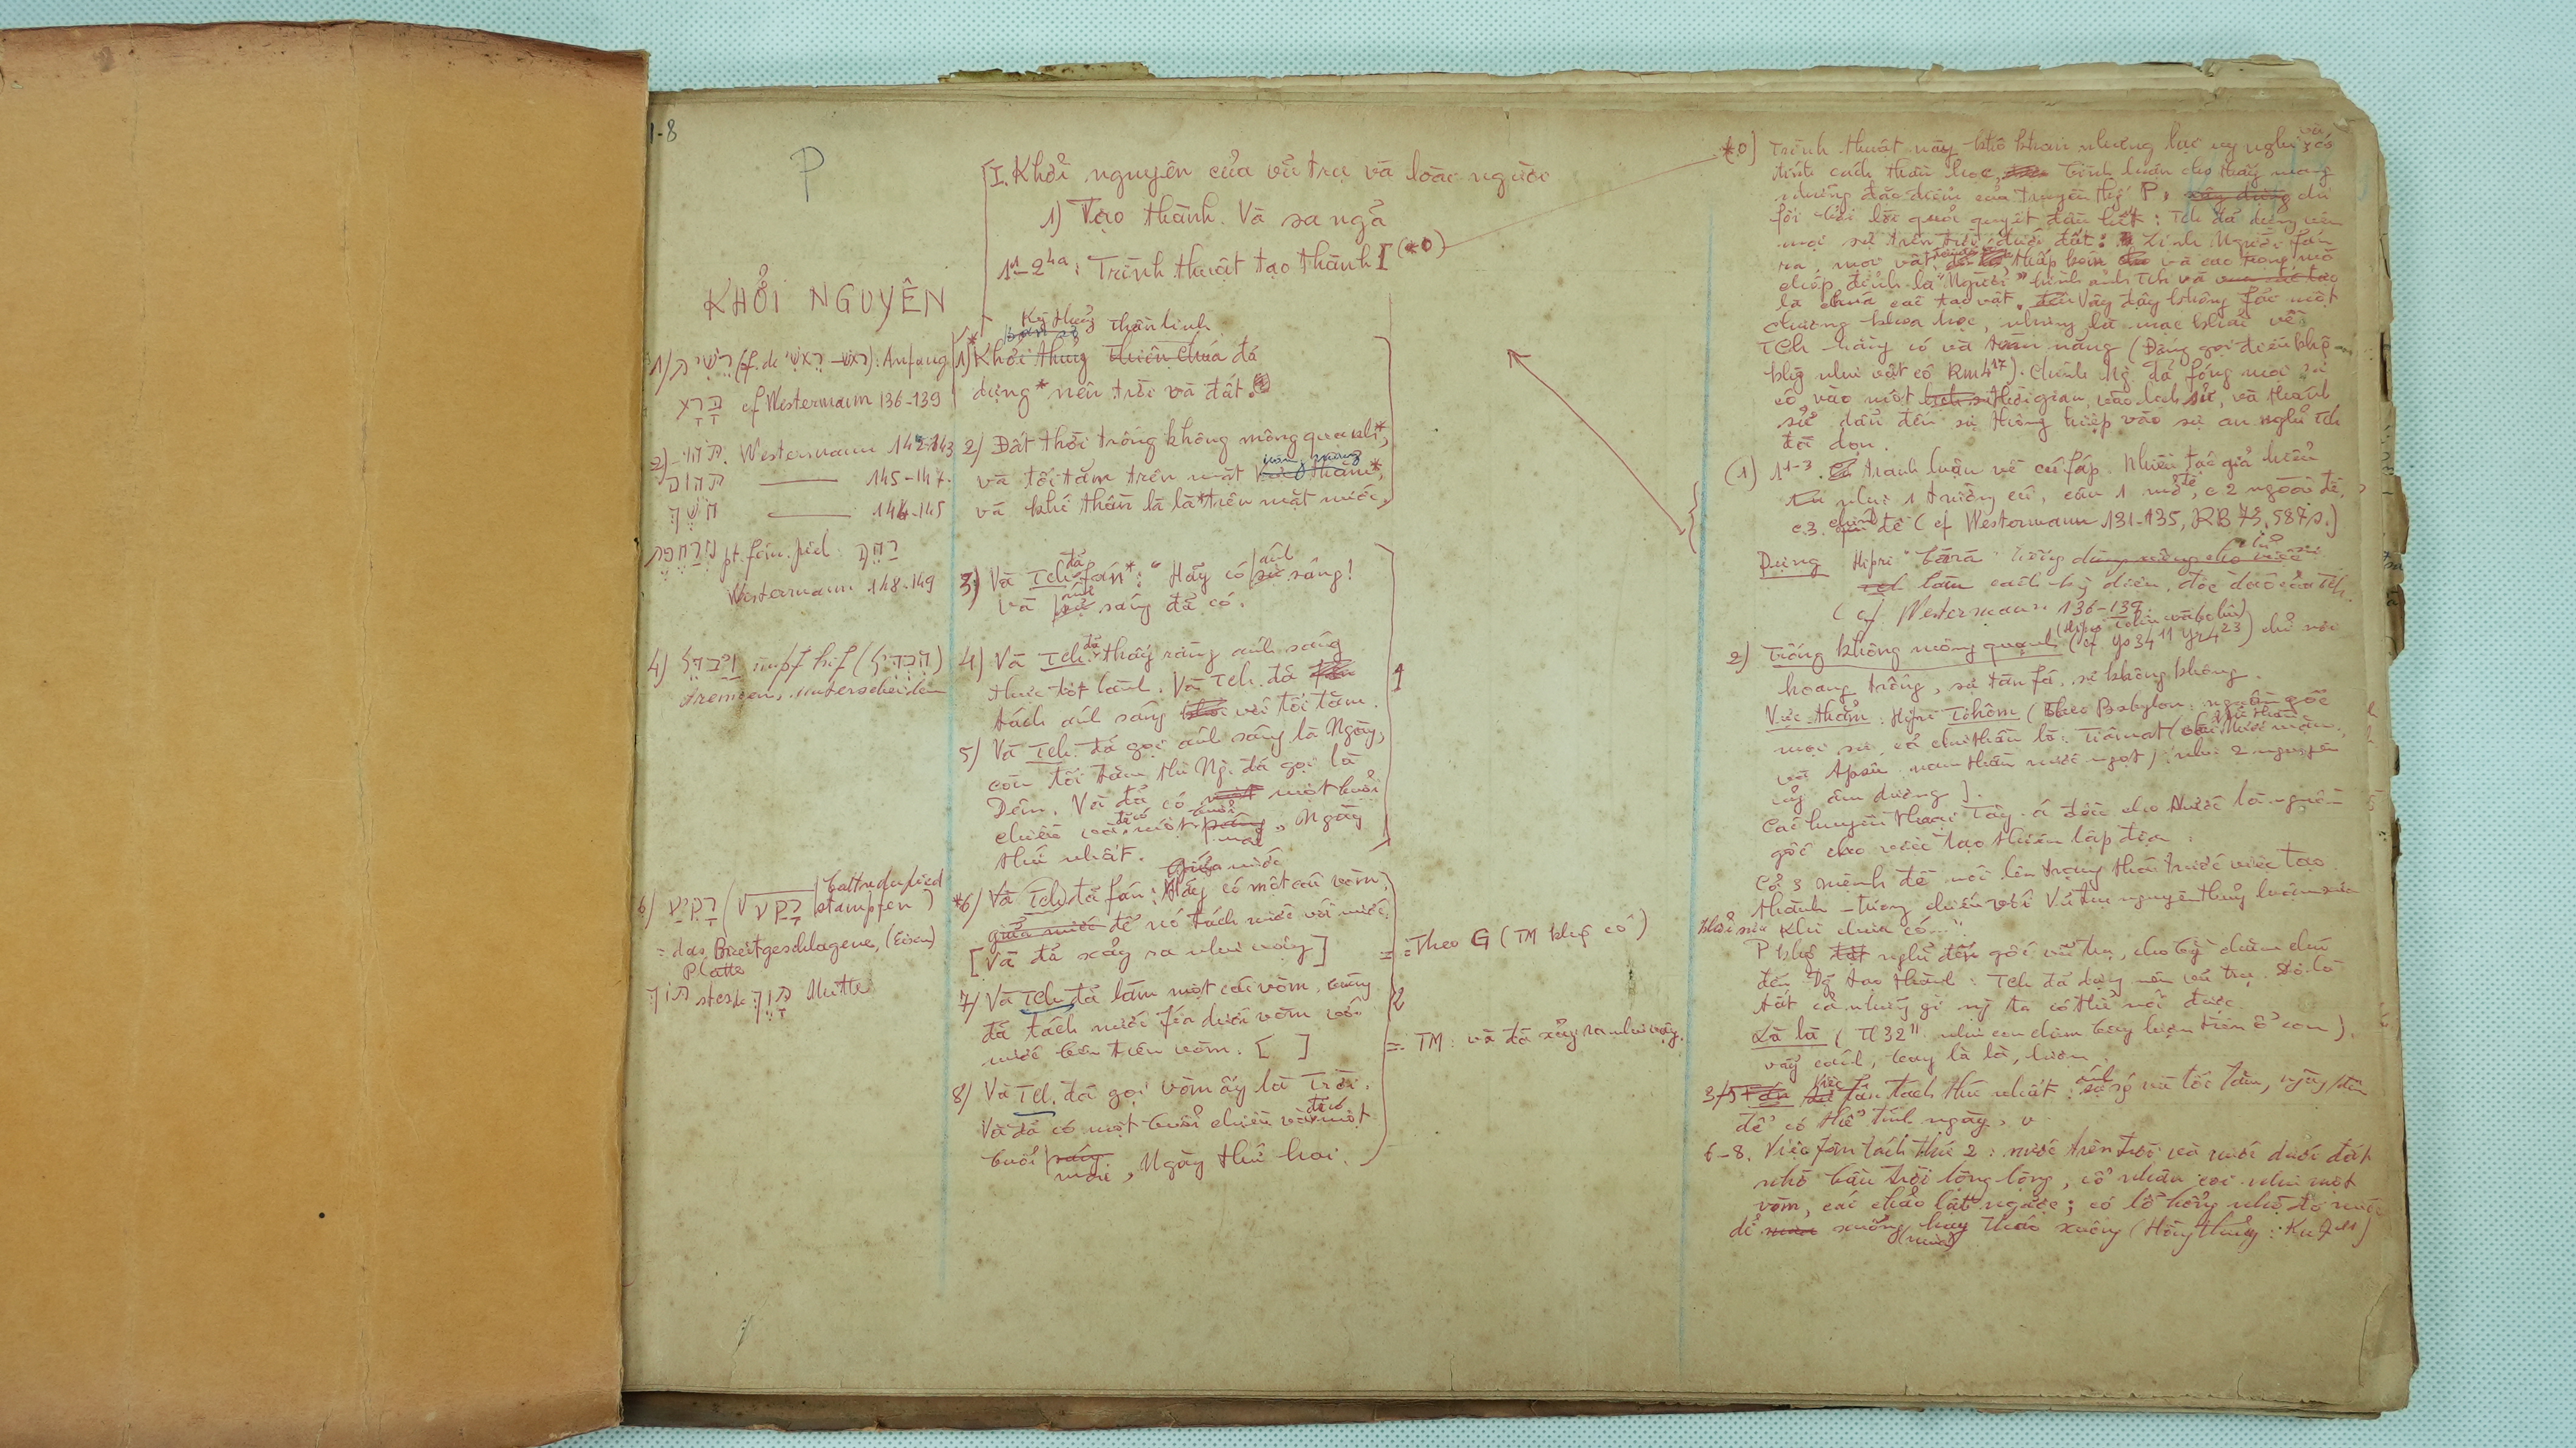 1-8
P
I. Khởi nguyên của vũ trụ và loài người
1) Tạo thành. Và sa ngã
1¹-2⁴ᵃ: Trình thuật tạo thành I (*0)
KHỞI NGUYÊN
1/ רֵאשִׁית : Anfang
בָּרָא cf Westermann 136-139
2) Westermann 142-143
תהום 145-147.
חֹשֶׁךְ 144-145
מְרַחֶפֶת pt. fém. piel רחף
Westermann 148-149
4) וַיַּבְדֵּל impf hif
trennen, unterscheiden
6) רָקִיעַ ( √ רקע stampfen )
= das Breitgeschlagene, (Eisen)
Platte
תּוֹךְ Mitte
thần linh
1) Khởi thủy Thiên Chúa đã
dựng* nên trời và đất.
2) Đất thời trống không mông quạnh*,
và tối tăm trên mặt thẳm*,
và khí thần là là* trên mặt nước,
đã ánh
3) Và TCh fán*: "Hãy có sự sáng!
và sáng đã có.
đã
4) Và TCh thấy rằng ánh sáng
thực tốt lành. Và TCh đã
tách ánh sáng với tối tăm.
5) Và TCh đã gọi ánh sáng là Ngày,
còn tối tăm thì Ng. đã gọi là
Đêm. Và đã có một buổi
chiều và đã có một buổi mai, Ngày
thứ nhất.
giữa nước
*6) Và TCh đã fán: Hãy có một cái vòm,
giữa nước để nó tách nước với nước.
[Và đã xảy ra như vậy]
7) Và TCh đã làm một cái vòm, cùng
đã tách nước fía dưới vòm với
nước bên trên vòm. [ ]
8) Và TCh. đã gọi vòm ấy là Trời.
Và đã có một buổi chiều và đã có một
buổi sáng
mai, Ngày thứ hai.
1
2
= Theo G (TM khg có)
= TM: và đã xảy ra như vậy.
*0) Trình thuật này khô khan nhưng lạc
tính cách thần học, bình luận cho thấy mang
những đặc điểm của truyền thế P,
fối bởi lời quả quyết đầu hết: TCh đã dựng nên
mọi sự trên trời dưới đất;
ra, mọi vật thấp hơn và cao trọng
chóp đỉnh là "Người" hình ảnh TCh và
là chúa các tạo vật. Vậy đây không fải một
chương khoa học, nhưng là mạc khải về
TCh hằng có và toàn năng (Đấng gọi điều khg
khg như vật có Rm 4¹⁷). Chính Ng đã fóng mọi sự
có vào một thời gian, vào lịch sử, và thánh
sử dẫn đến sự thông hiệp vào sự an nghỉ TCh
đã dọn.
(1) 1¹⁻³. tranh luận về cú fáp. Nhiều tác giả hiểu
như 1 trường cú, câu 1 mở đề, c 2 ngoài đề,
c.3. chính đề (cf Westermann 131-135, RB 73, 587s.)
Dựng Hipri "bārā"
làm cách kỳ diệu, độc đáo của TCh.
(cf. Westermann 136-139
2) Trống không mông quạnh (cf Ys 34¹¹ Yr 4²³) chỉ nơi
hoang trống, sự tàn fá, sự không không.
Vực thẳm: Hipri Tehôm (theo Babylon: nguồn gốc
mọi sự, cả chư thần là: Tiamat
và Apsu nam thần nước ngọt) như 2 nguyên
lý âm dương ].
Các huyền thoại Tây-á đều cho Nước là nguồn
gốc cho việc tạo thiên lập địa.
Cả 3 mệnh đề nói lên trạng thái trước việc tạo
thành
Khởi sử Khi chưa có..."
P khg nghĩ đến gốc vũ trụ, cho bằng chăm chú
đến Đg tạo thành: TCh đã dựng nên vũ trụ. Đó là
tất cả những gì ng ta có thể nói được.
Là là (Tl 32¹¹ như con chim bay lượn trên ổ con).
vẫy cánh, bay là là, lượn.
3-5 Việc fân tách thứ nhất: ánh sáng và tối tăm, ngày, đêm
để có thể tính ngày,
6-8. Việc fân tách thứ 2: nước trên trời và nước dưới đất
nhờ bầu trời lồng lộng, cổ nhân coi như một
vòm, cái chảo lật ngược; có lỗ hổng nhờ đó nước
để xuống hay tháo xuống (Hồng thủy: Kn 7¹¹)
(mưa)